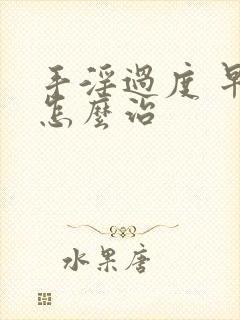 手淫過度 早
怎麼治
水果唐